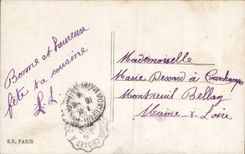 Bonne et heureuse
fête ta cousine
Mademoiselle
Marie à
Montreuil Bellay
Maine & Loire
PARIS